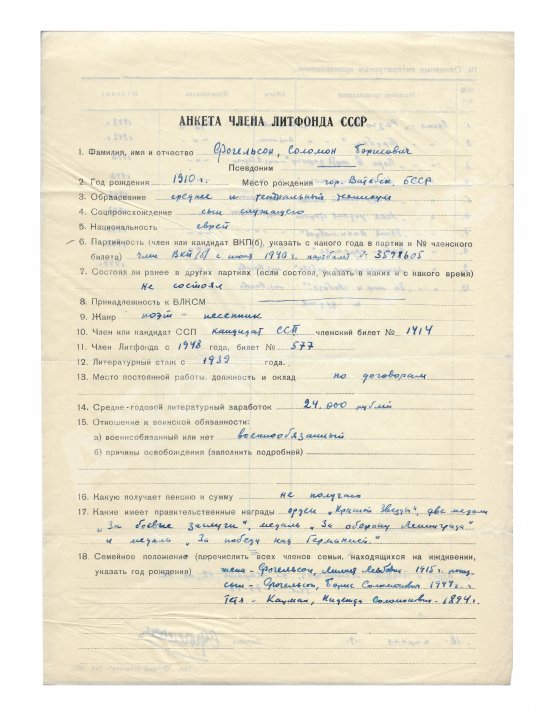 АНКЕТА ЧЛЕНА ЛИТФОНДА СССР
1. Фамилия, имя и отчество Фогельсон, Соломон Борисович
Псевдоним
2. Год рождения 1910 г. Место рождения гор. Витебск, БССР
3. Образование среднее и театральный техникум
4. Соцпроисхождение сын служащего
5. Национальность еврей
6. Партийность (член или кандидат ВКП(б), указать с какого года в партии и № членского
билета) член ВКП(б) с июня 1940 г. партбилет № 3598605
7. Состоял ли ранее в других партиях (если состоял, указать в каких и с какого время)
не состоял
8. Принадлежность к ВЛКСМ
9. Жанр поэт - песенник
10. Член или кандидат ССП кандидат ССП членский билет № 1414
11. Член Литфонда с 1943 года, билет № 577
12. Литературный стаж с 1939 года.
13. Место постоянной работы, должность и оклад по договорам
14. Средне-годовой литературный заработок 24.000 рублей
15. Отношение к воинской обязанности:
а) военнообязанный или нет военнообязанный
б) причины освобождения (заполнить подробней)
16. Какую получает пенсию и сумму не получаю
17. Какие имеет правительственные награды орден „Красной Звезды", две медали
„За боевые заслуги", медаль „За оборону Ленинграда"
и медаль „За победу над Германией"
18. Семейное положение (перечислить всех членов семьи, находящихся на иждивении,
указать год рождения) жена - Фогельсон, Львовна - 1915 г. рожд.
сын - Фогельсон, Борис Соломонович 1944 г.
тётя - Кацман, Надежда Соломоновна - 1894 г.